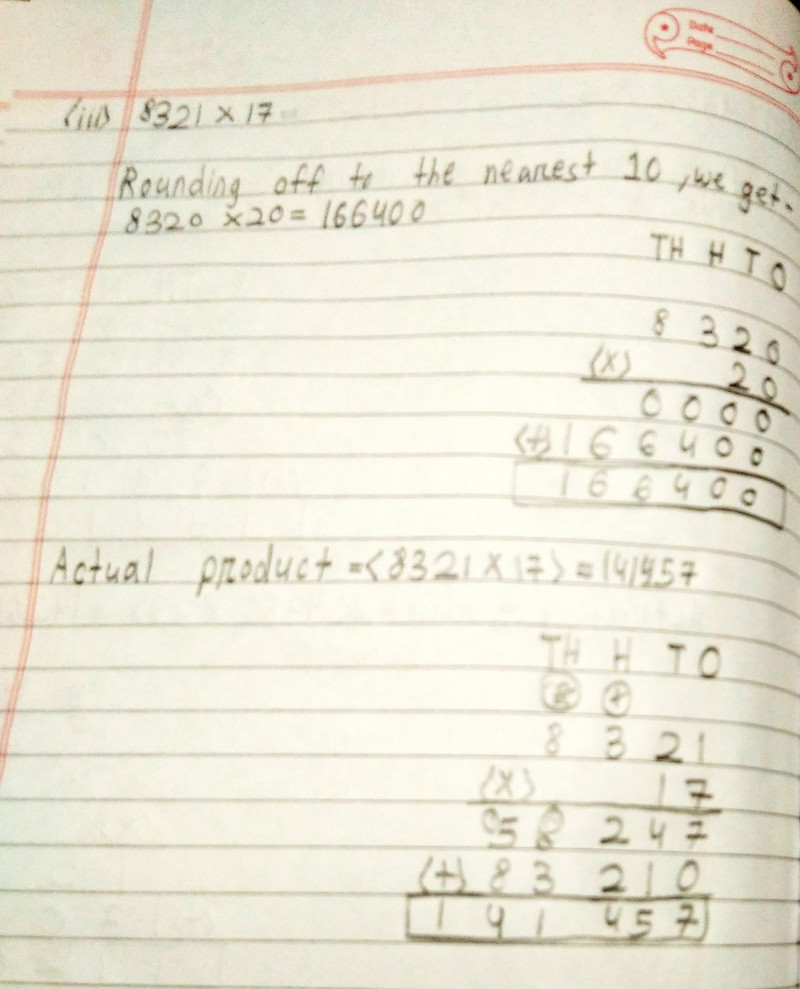 Date
Page
(iii) 8321 × 17
Rounding off to the nearest 10, we get.
8320 × 20 = 166400
TH H T O
8 3 2 0
(×) 2 0
0 0 0 0
(+) 1 6 6 4 0 0
1 6 6 4 0 0
Actual product = (8321 × 17) = 141457
TH H T O
8 3 2 1
(×) 1 7
5 8 2 4 7
(+) 8 3 2 1 0
1 4 1 4 5 7